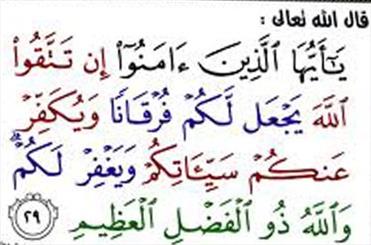 قال الله تعالى :
يَٰٓأَيُّهَا ٱلَّذِينَ ءَامَنُوٓا۟ إِن تَتَّقُوا۟
ٱللَّهَ يَجْعَل لَّكُمْ فُرْقَانًا وَيُكَفِّرْ
عَنكُمْ سَيِّـَٔاتِكُمْ وَيَغْفِرْ لَكُمْۗ
وَٱللَّهُ ذُو ٱلْفَضْلِ ٱلْعَظِيمِ ٢٩